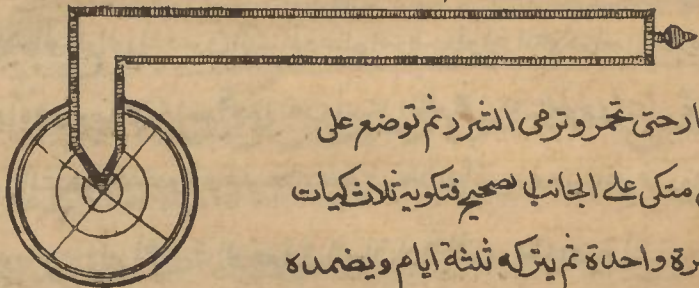 ارحتى تحمر وترمى الشرر ثم توضع على
متكى على الجانب لصحيح فتكويه ثلاث كيات
رة واحدة ثم يتركه ثلثة ايام ويضمده